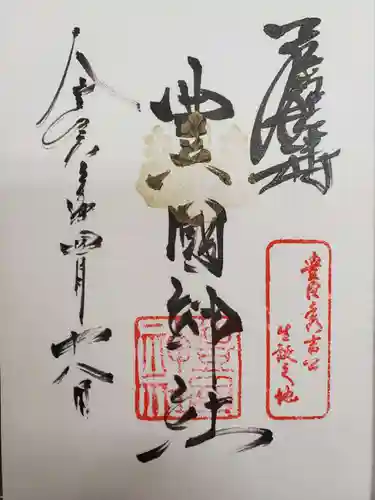 奉拝
豊臣秀吉公
生誕之地
豊國神社
令和六年四月廿八日